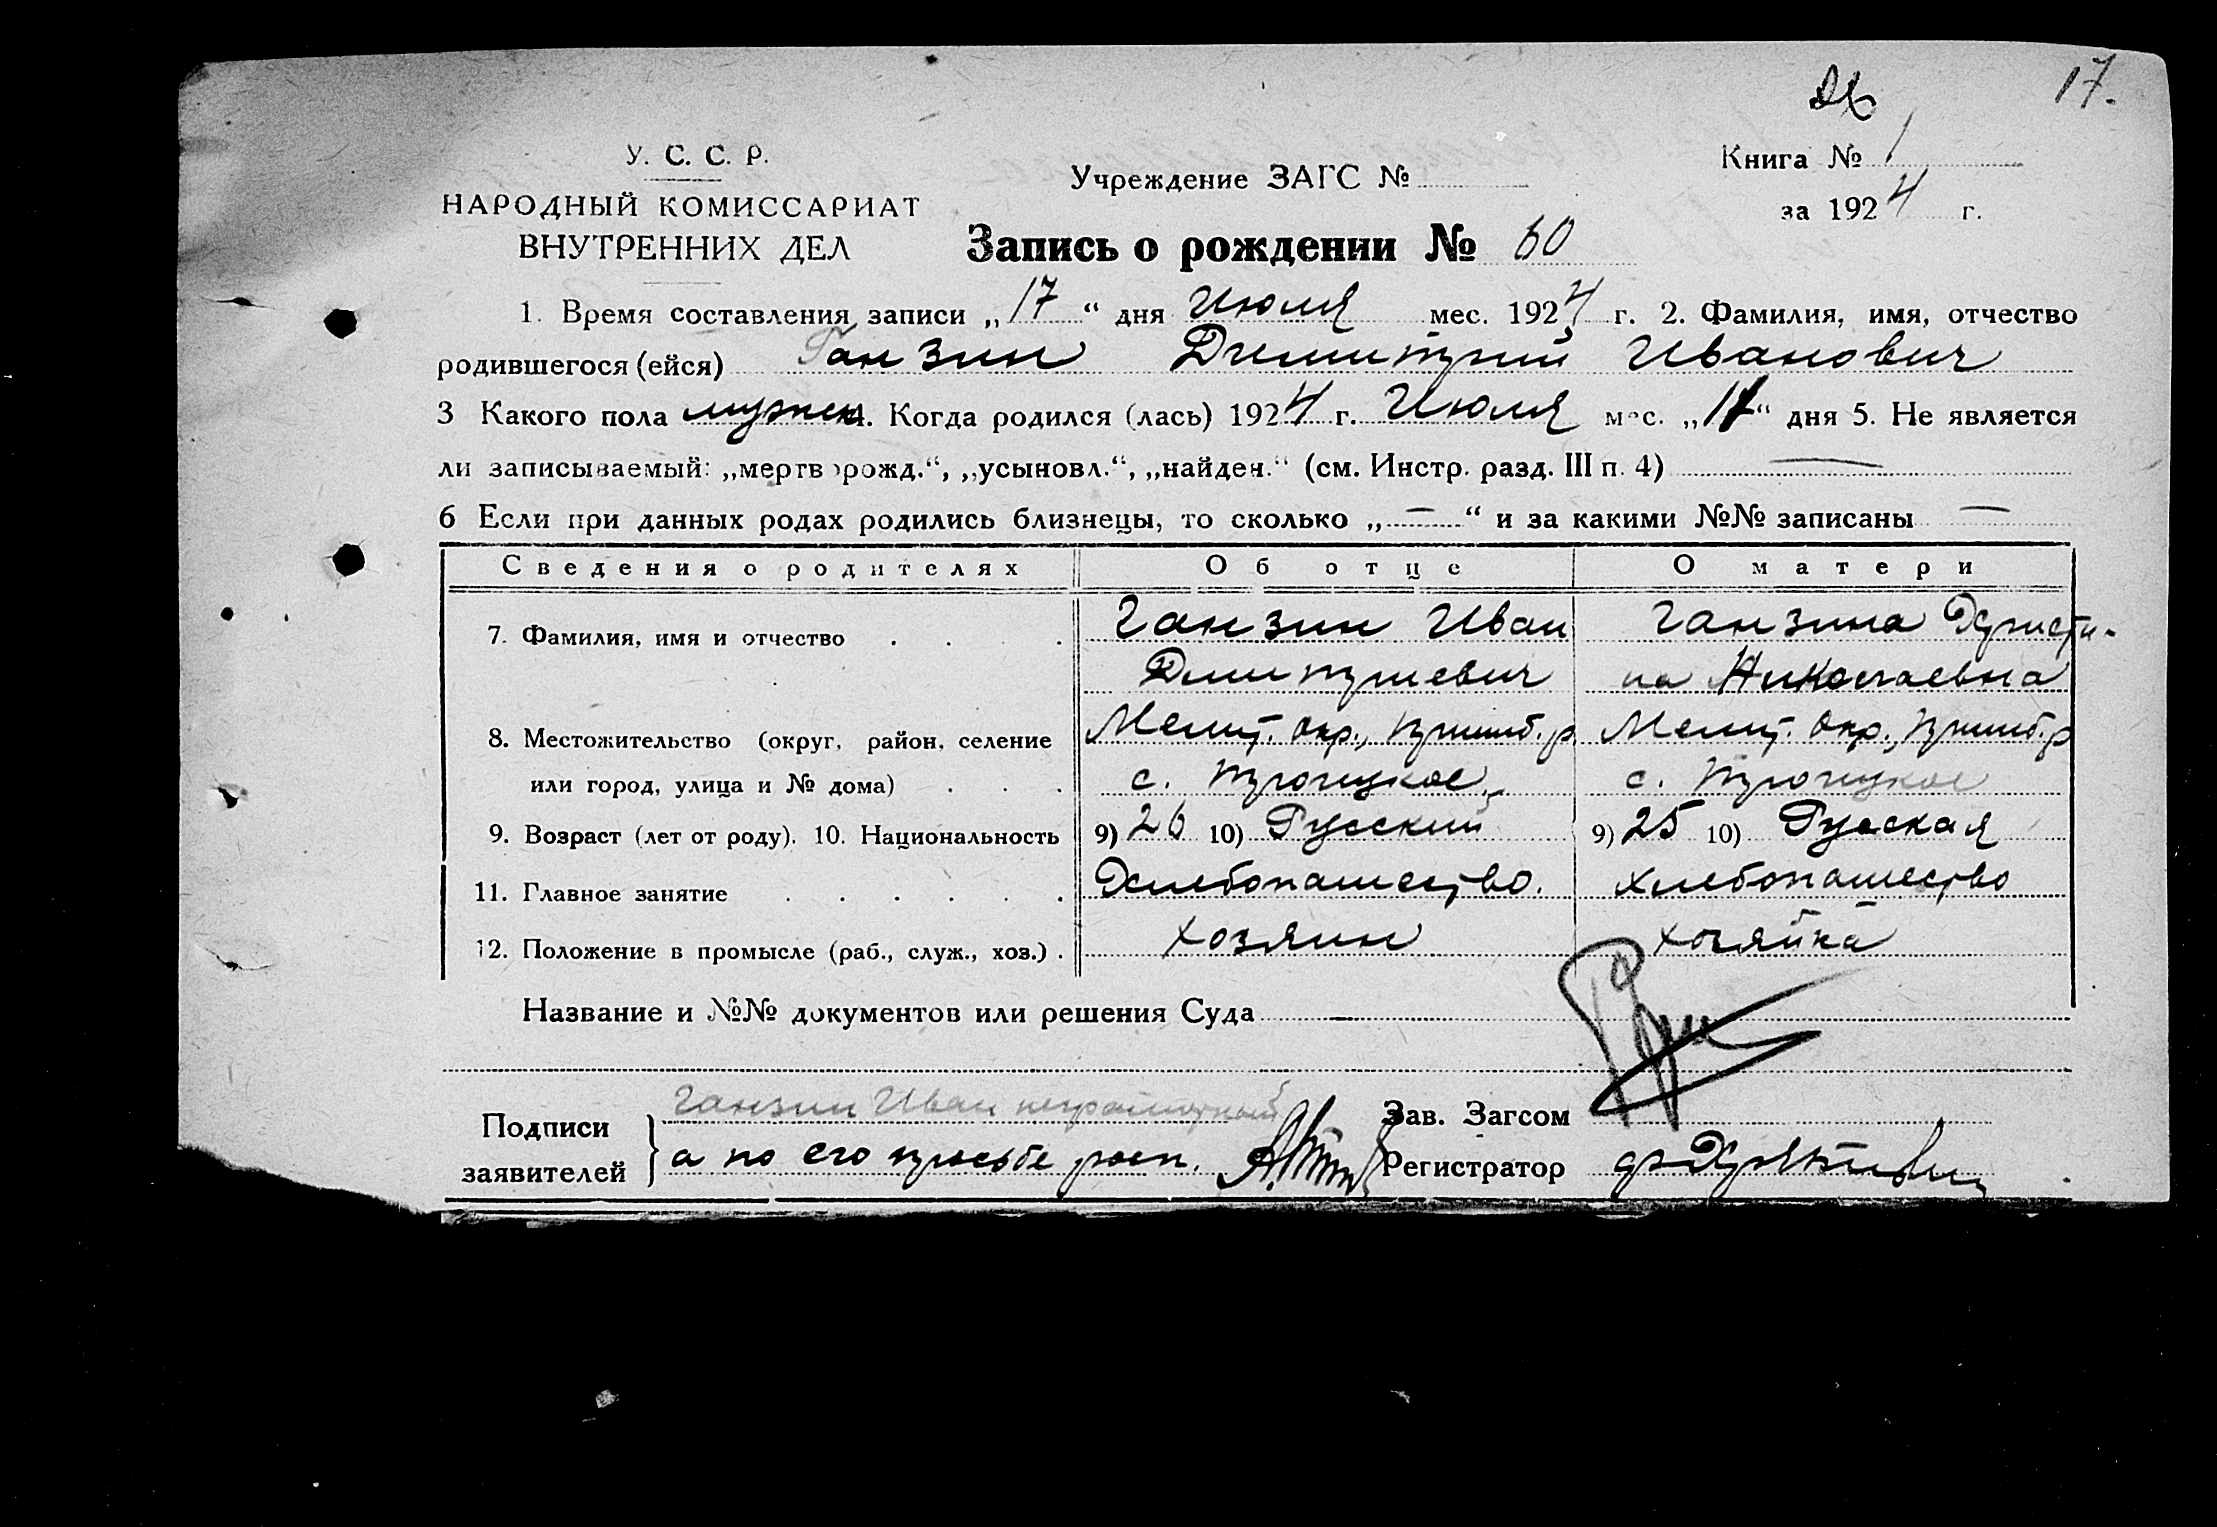 17.
У. С. С. Р.
НАРОДНЫЙ КОМИССАРИАТ
ВНУТРЕННИХ ДЕЛ
Учреждение ЗАГС №
Книга № 1
за 1924 г.
Запись о рождении № 60
1. Время составления записи „17“ дня Июля мес. 1924 г. 2. Фамилия, имя, отчество
родившегося (ейся) Ганзин Димитрий Иванович
3 Какого пола мужск. Когда родился (лась) 1924 г. Июля мес. „“ дня 5. Не является
ли записываемый: „мертворожд.“, „усыновл.“, „найден.“ (см. Инстр. разд. III п. 4) —
6 Если при данных родах родились близнецы, то сколько „—“ и за какими №№ записаны —
Сведения о родителях Об отце О матери
7. Фамилия, имя и отчество . . . . Ганзин Иван Ганзина Христи-
Дмитриевич на Николаевна
8. Местожительство (округ, район, селение Мелит. окр., Пришиб. р. Мелит. окр., Пришиб. р
или город, улица и № дома) . . . с. Троицкое, с. Троицкое
9. Возраст (лет от роду). 10. Национальность 9) 26 10) Русский 9) 25 10) Русская
11. Главное занятие . . . . . . Хлебопашество. хлебопашество
12. Положение в промысле (раб., служ., хоз.) . хозяин хозяйка
Название и №№ документов или решения Суда —
Подписи
заявителей
Ганзин Иван неграмотный
а по его просьбе росп.
Зав. Загсом
Регистратор